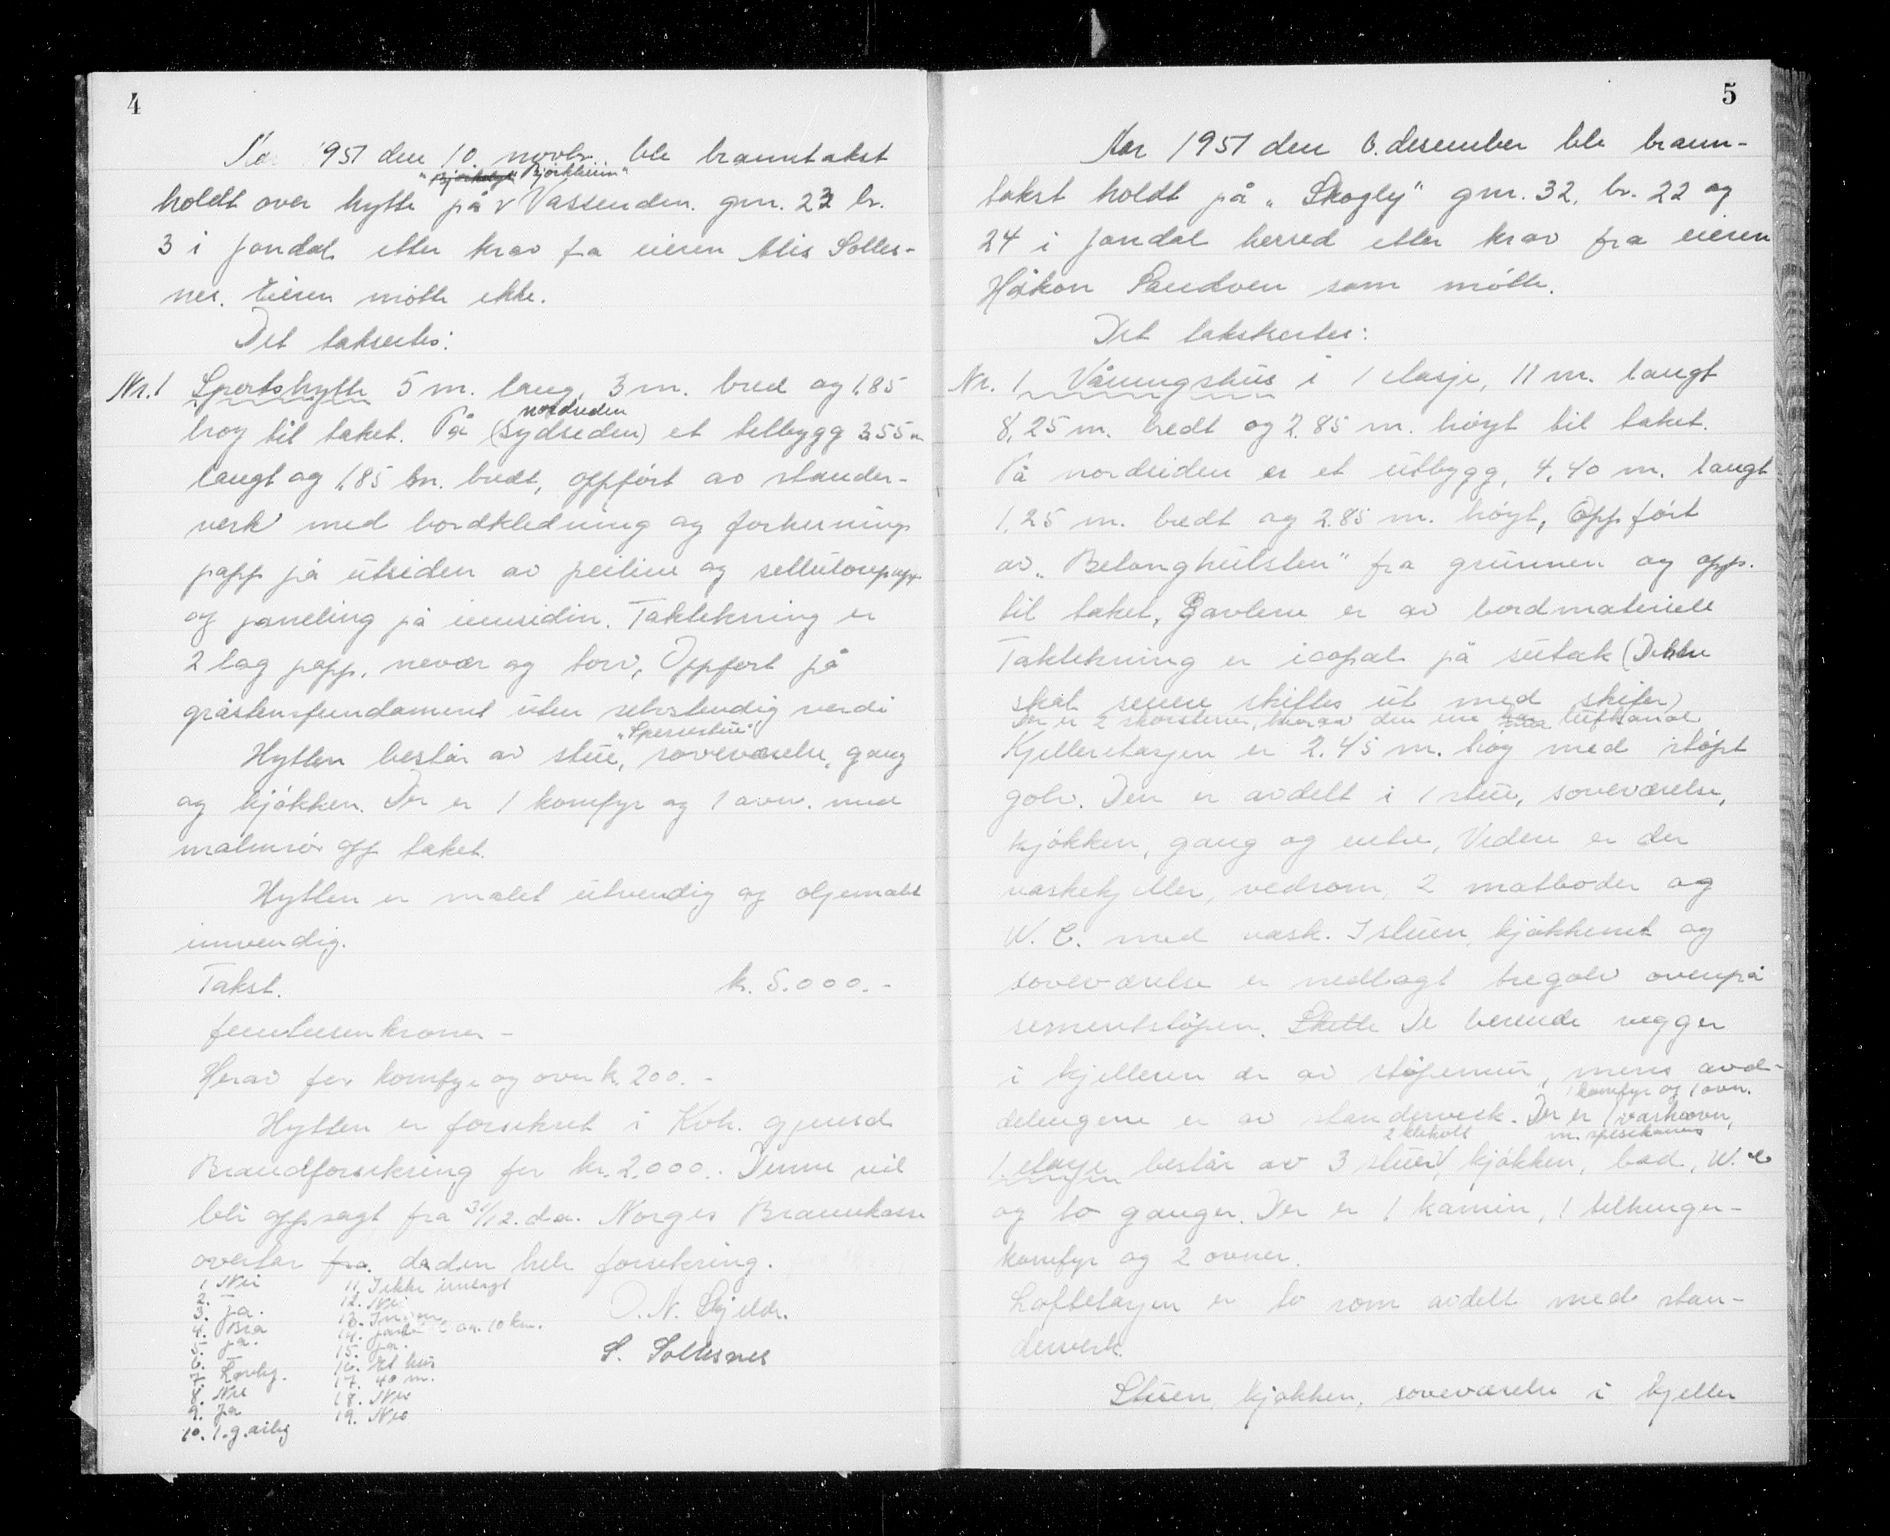 4
1951 den 10. novbr. ble branntakst
"Bjørkheim"
holdt over hytte på Vassenden. gnr. 23 br.
3 i Jondal etter krav fra eieren Alis Solles-
nes. Eieren møtte ikke.
Det taksertes:
Nr. 1 Sportshytte 5 m. lang, 3 m. bred og 1,85
nordsiden
høy til taket. På (sydsiden) et tilbygg 3.55 m
langt og 1,85 m. bredt, oppført av stender-
verk med bordkledning og forhudnings
papp på utsiden av peiline og cellulosepapp
og paneling på innsiden. Taktekning er
2 lag papp, never og torv, Oppført på
gråstensfundament uten selvstendig verdi
"Spisestue"
Hytten består av stue, soveværelse, gang
og kjøkken. Der er 1 komfyr og 1 ovn. med
malmrør opp taket.
Hytten er malet utvendig og oljemalt
innvendig.
Takst. kr. 5.000.-
femtusenkroner -
Herav for komfyr og ovn kr. 200.-
Hytten er forsikret i Kvh. gjensd.
Brandforsikring for kr. 2.000.. Denne vil
bli oppsagt fra 31/12. d.a. Norges Brannkasse
overtar fra. da den hele forsikring.
1. Nei 11. Ikke innlagt
2. – 12. Nei
3. Ja. 13.
4. Bra 14. ca. 10 km.
5. Ja. 15. Ja.
6. – 16. Et hus
7. Lovlig. 17. 40 m.
8. Nei 18. Nei
9. Ja 19. Nei
10. 1. g. årlig
O. N. Skjeldr.
S. Sollesnes
5
Aar 1951 den 6. desember ble brann-
takst holdt på "Skogly" gnr. 32. br. 22 og
24 i Jondal herred etter krav fra eieren
Håkon Sandven som møtte.
Det takstertes:
Nr. 1 Våningshus i 1 etasje, 11 m. langt
8,25 m. bredt og 2.85 m. høyt til taket.
På nordsiden er et utbygg, 4.40 m. langt
1,25 m. bredt og 2.85 m. høyt, Oppført
av "Betonghulsten" fra grunnen og opp.
til taket, Gavlene er av bordmateriale
Taktekning er icopal på sutak (Dette
skal senere skiftes ut med skifer)
Der er 2 skorstener, hvorav den ene har luftkanal
Kjelleretasjen er 2.45 m. høy med støpt
golv. Den er avdelt i 1 stue, soveværelse,
kjøkken, gang og entre, Videre er der
vaskekjeller, vedrom, 2 matboder og
W. C. med vask. I stuen, kjøkkenet og
soveværelse er nedlagt tregolv ovenpå
sementstøpen. Skille De berende vegger
i kjelleren er av støpemur, mens avd-
1 komfyr og 1 ovn.
delingene er av standerverk. Der er 1 vaskeovn,
2 kleskott m. spisekammers
1. etasje består av 3 stuer, kjøkken, bad, W. C
og to ganger. Der er 1 kamin, 1 tilhenger-
komfyr og 2 ovner.
Loftetasjen er to rom avdelt med stan-
derverk.
Stuen, kjøkken, soveværelse i kjeller